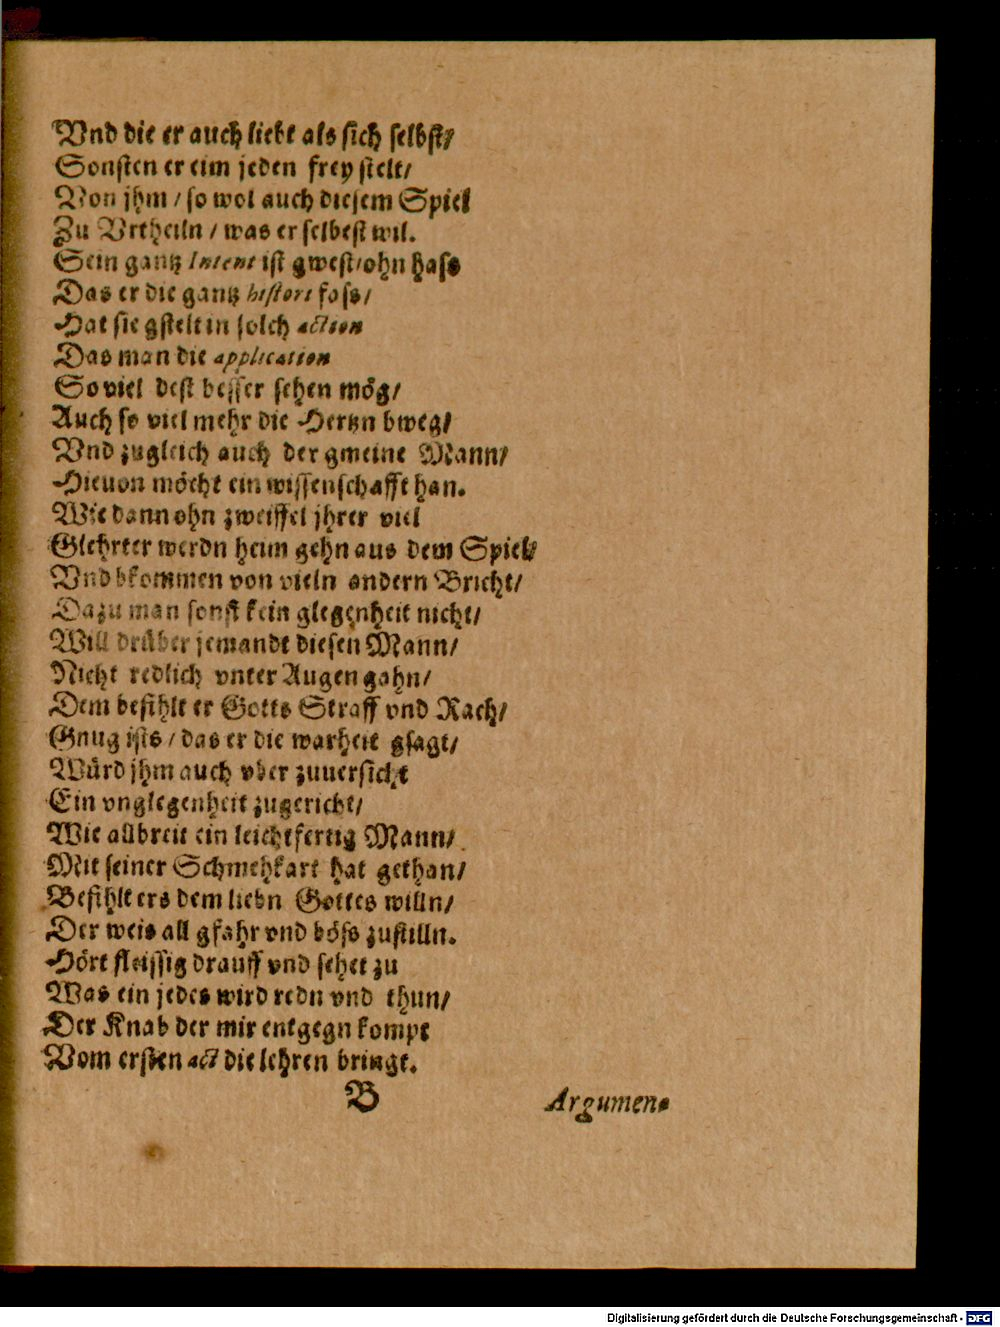 Vnd die er auch liebt als sich selbst/
Sonsten er eim jeden frey stelt/
Von jhm / so wol auch diesem Spiel
Zu Vrtheiln / was er selbest wil.
Sein gantz Intent ist gwest/ohn hass
Das er die gantz histori fass/
Hat sie gstelt in solch action
Das man die application
So viel dest besser sehen mög/
Auch so viel mehr die Hertzn bweg/
Vnd zugleich auch der gmeine Mann/
Hieuon möcht ein wissenschafft han.
Wie dann ohn zweiffel jhrer viel
Glehrter werdn heim gehn aus dem Spiel
Vnd bkommen von vieln andern Bricht/
Dazu man sonst kein glegenheit nicht/
Will drüber jemandt diesen Mann/
Nicht redlich vnter Augen gahn/
Dem befihlt er Gotts Straff vnd Rach/
Gnug ists / das er die warheit gsagt/
Würd jhm auch vber zuuersicht
Ein vnglegenheit zugericht/
Wie allbreit ein leichtfertig Mann/
Mit seiner Schmehkart hat gethan/
Befihlt ers dem liebn Gottes willn/
Der weis all gfahr vnd böss zustilln.
Hört fleissig drauff vnd sehet zu
Was ein jedes wird redn vnd thun/
Der Knab der mir entgegn kompt
Vom ersten act die lehren bringt.
B Argumen-
Digitalisierung gefördert durch die Deutsche Forschungsgemeinschaft - DFG